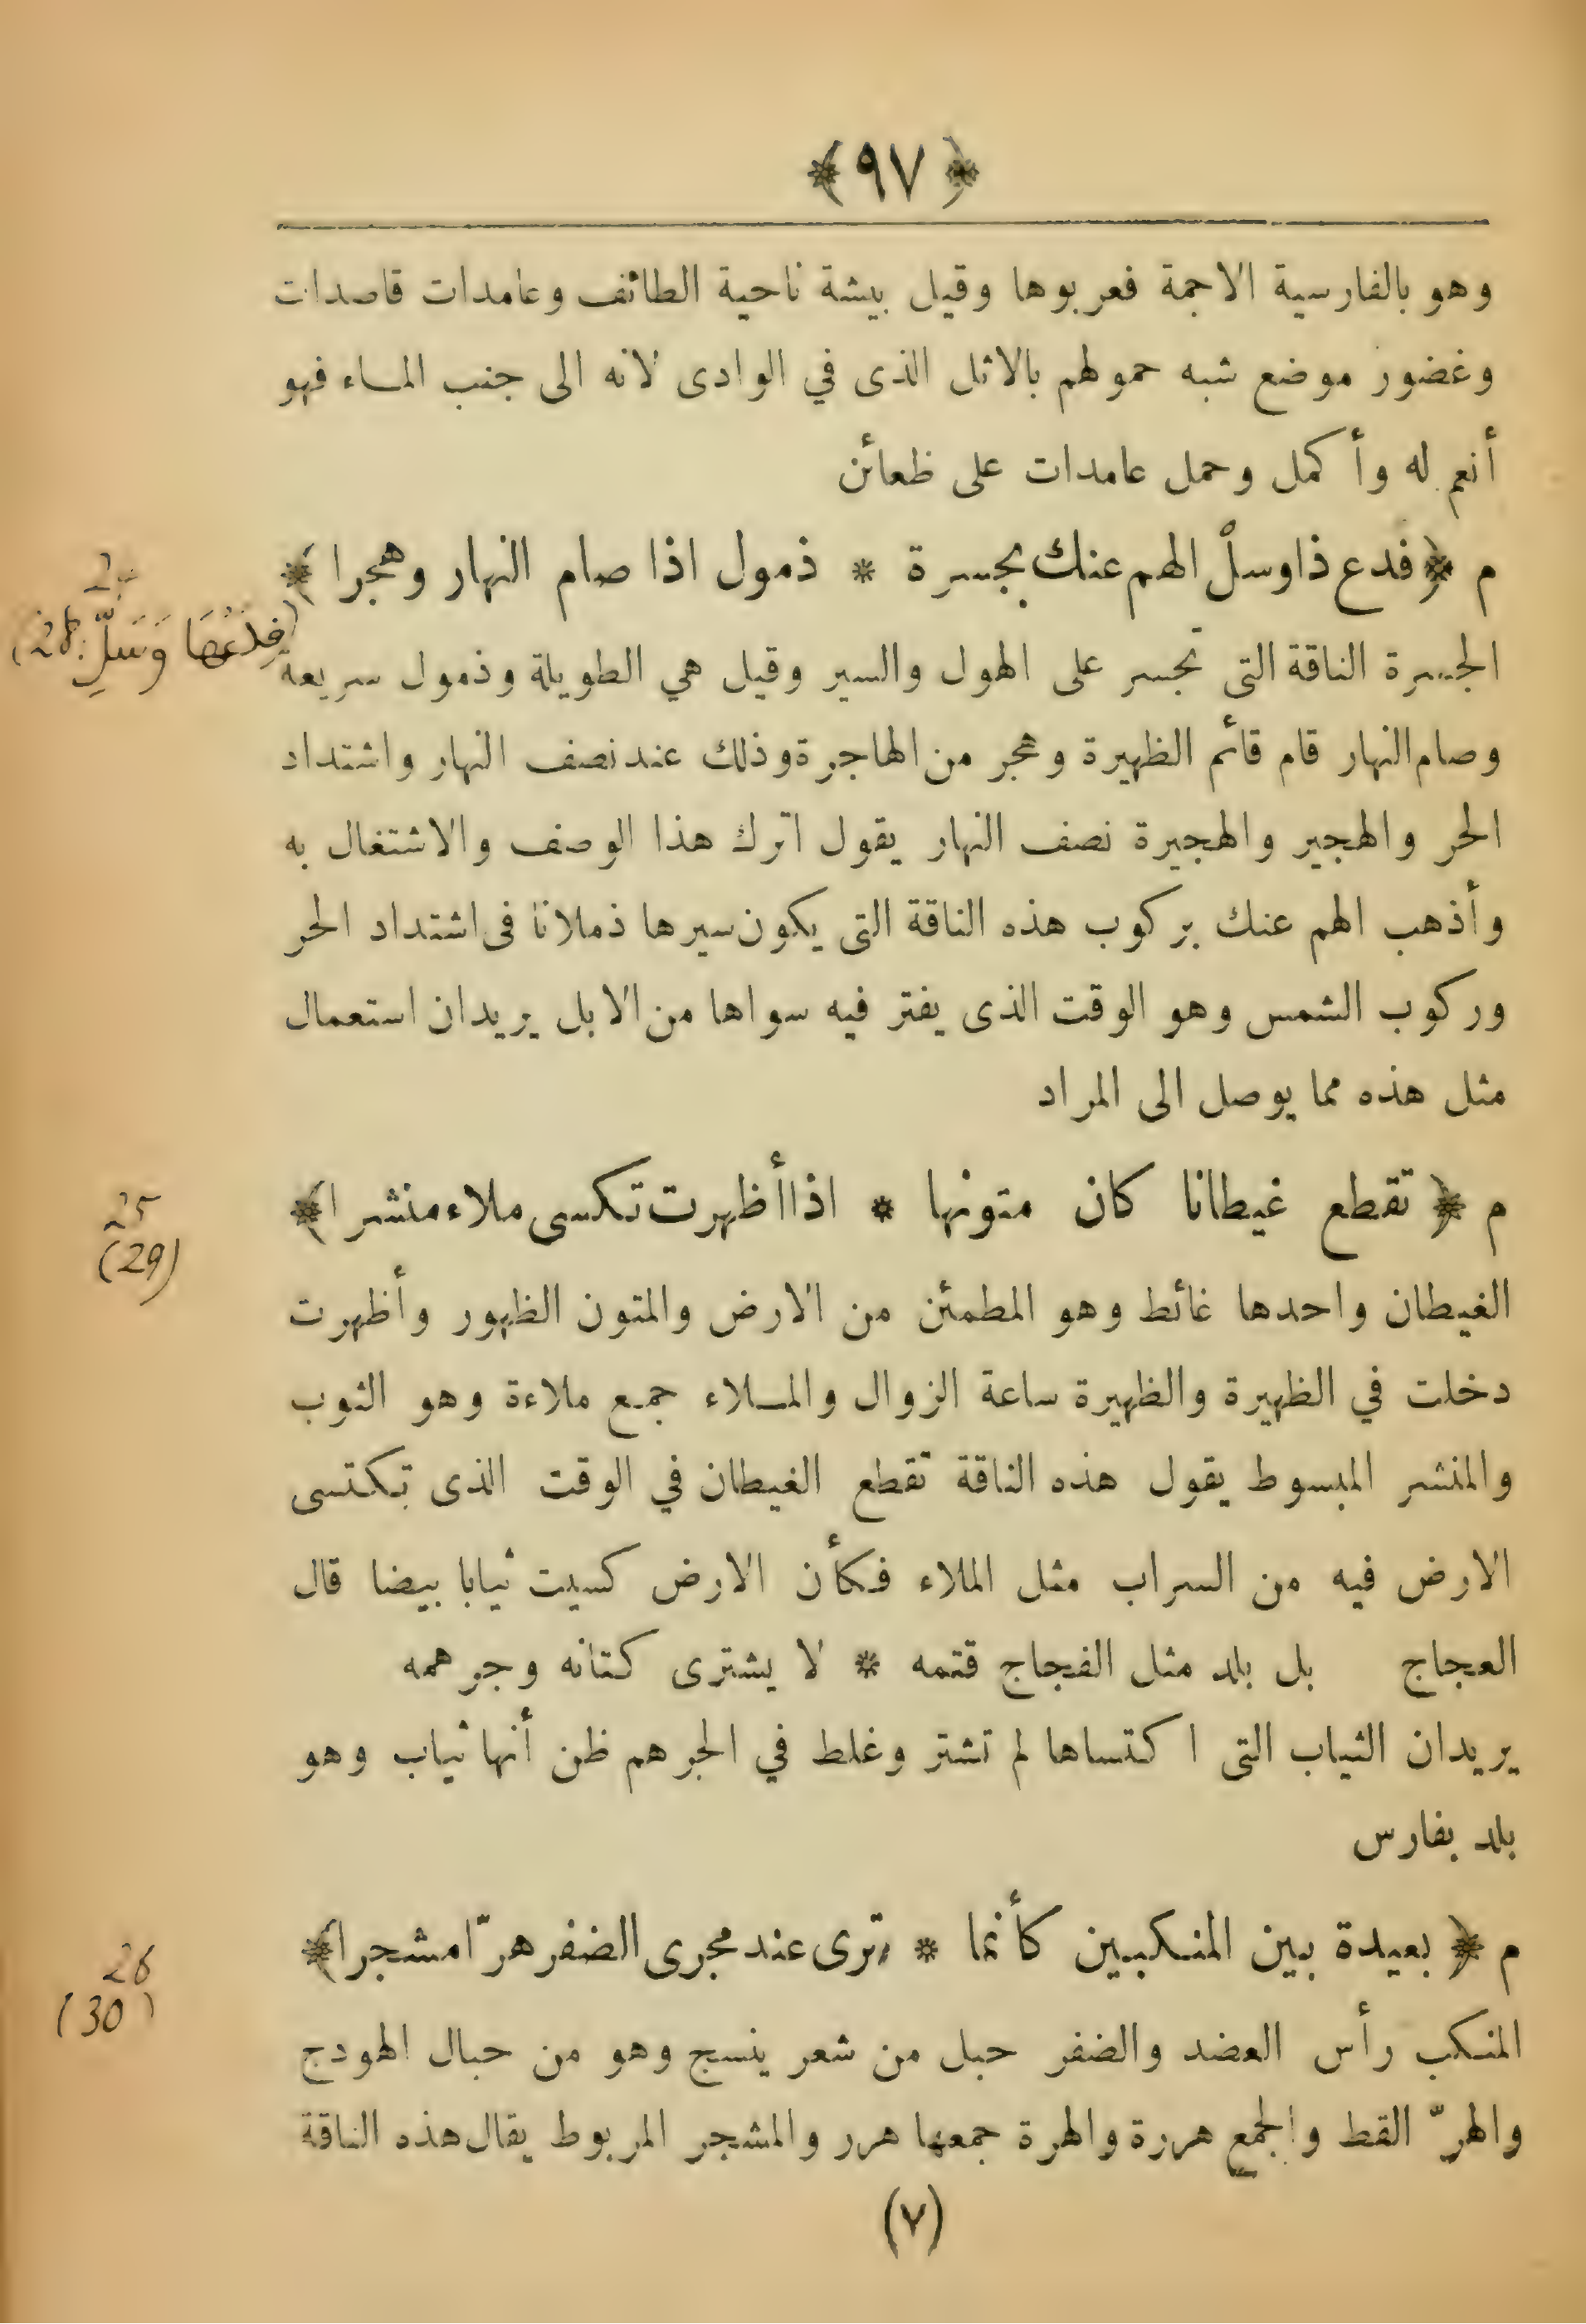 ﴿ ٩٧ ﴾
وهو بالفارسية الاجمة فعربوها وقيل بيشة ناحية الطائف وعامدات قاصدات
وغضور موضع شبه حمولهم بالاثل الذى في الوادى لانه الى جنب الماء فهو
أنعم له وأكمل وحمل عامدات على ظعائن
م ﴿ فدع ذا وسلْ الهم عنك بجسرة * ذمول اذا صام النهار وهجرا ﴾
24
(فَدَعْهَا وَسَلِّ: 28)
الجسرة الناقة التى تجسر على الهول والسير وقيل هي الطويلة وذمول سريعة
وصام النهار قام قائم الظهيرة وهجر من الهاجرة وذلك عند نصف النهار واشتداد
الحر والهجير والهجيرة نصف النهار يقول اترك هذا الوصف والاشتغال به
وأذهب الهم عنك بركوب هذه الناقة التى يكون سيرها ذملانا فى اشتداد الحر
وركوب الشمس وهو الوقت الذى يفتر فيه سواها من الابل يريدان استعمال
مثل هذه مما يوصل الى المراد
م ﴿ تقطع غيطانا كان متونها * اذا أظهرت تكسى ملاء منشرا ﴾
25
(29)
الغيطان واحدها غائط وهو المطمئن من الارض والمتون الظهور وأظهرت
دخلت في الظهيرة والظهيرة ساعة الزوال والملاء جمع ملاءة وهو الثوب
والمنشر المبسوط يقول هذه الناقة تقطع الغيطان في الوقت الذى تكتسى
الارض فيه من السراب مثل الملاء فكأن الارض كسيت ثيابا بيضا قال
العجاج بل بلد مثل الفجاج قتمه * لا يشترى كتانه وجرهمه
يريدان الثياب التى اكتساها لم تشتر وغلط في الجرهم ظن أنها ثياب وهو
بلد بفارس
م ﴿ بعيدة بين المنكبين كأنما * ترى عند مجرى الضفر هرّا مشجرا ﴾
26
(30)
المنكب رأس العضد والضفر حبل من شعر ينسج وهو من حبال الهودج
والهرّ القط والجمع هررة والهرة جمعها هرر والمشجر المربوط يقال هذه الناقة
(٧)